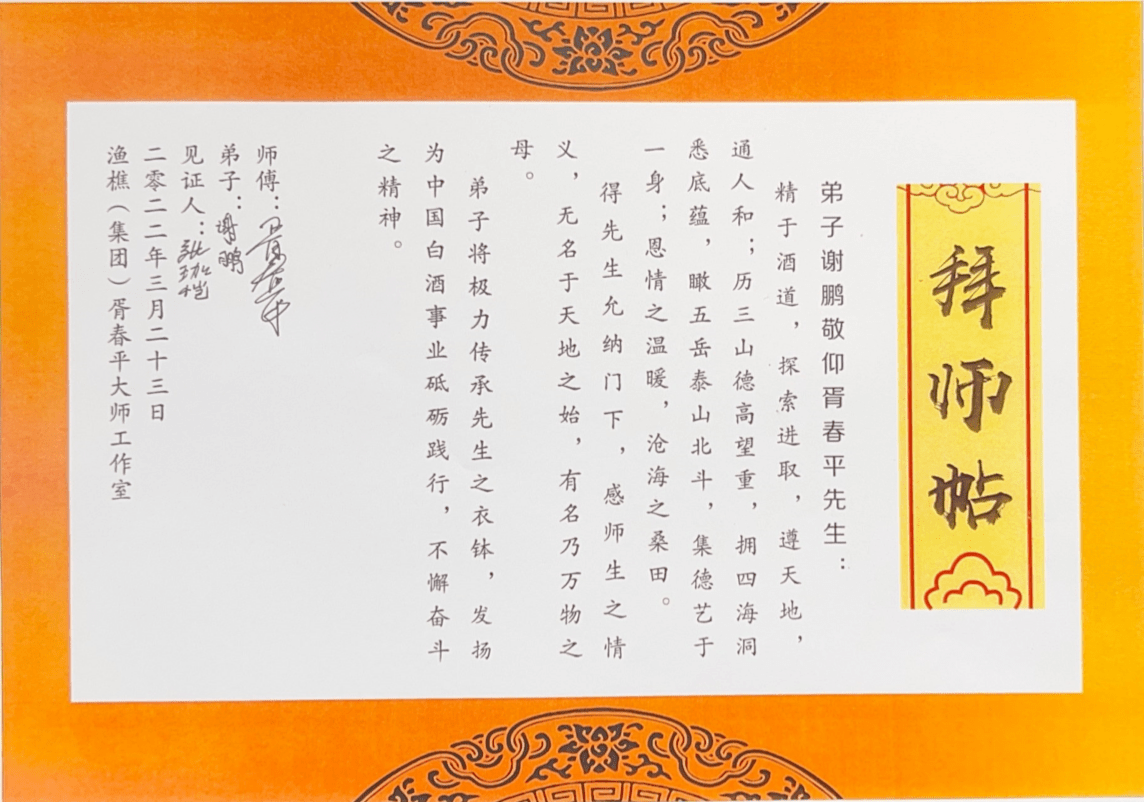 拜师帖
弟子谢鹏敬仰胥春平先生：
精于酒道，探索进取，遵天地，
通人和；历三山德高望重，拥四海洞
悉底蕴，瞰五岳泰山北斗，集德艺于
一身；恩情之温暖，沧海之桑田。
得先生允纳门下，感师生之情
义，无名于天地之始，有名乃万物之
母。
弟子将极力传承先生之衣钵，发扬
为中国白酒事业砥砺践行，不懈奋斗
之精神。
师傅：胥春平
弟子：谢鹏
见证人：
二零二二年三月二十三日
渔樵（集团）胥春平大师工作室